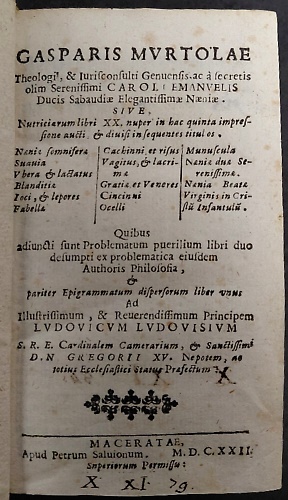 GASPARIS MVRTOLAE
Theologi, & Iurisconsulti Genuensis. ac à secretis
olim Serenissimi CAROLI EMANVELIS
Ducis Sabaudiæ Elegantissimæ Næniæ.
SIVE,
Nutriciarum libri XX. nuper in hac quinta impres-
sione aucti, & diuisi in sequentes titulos.
Næniæ somniferæ
Suauia
Vbera & lactatus
Blanditiæ
Ioci, & lepores
Fabellæ
Cachinni, et risus
Vagitus, & lacri-
mæ
Gratiæ et Veneres
Cincinni
Ocelli
Munuscula
Naniæ duæ Se-
renissimæ.
Nænia Beatæ
Virginis in Cri-
stū Infantulū.
Quibus
adiuncti sunt Problematum puerilium libri duo
desumpti ex problematica eiusdem
Authoris Philosofia,
&
pariter Epigrammatum dispersorum liber vnus
Ad
Illustrissimum, & Reuerendissimum Principem
LVDOVICVM LVDOVISIVM
S. R. E. Cardinalem Camerarium, & Sanctissimi
D. N GREGORII XV. Nepotem, ac
totius Ecclesiastici Status Præfectum.
X
MACERATAE,
Apud Petrum Saluionum. M. D. C. XXII.
Superiorum Permissu:
X XI. 79.